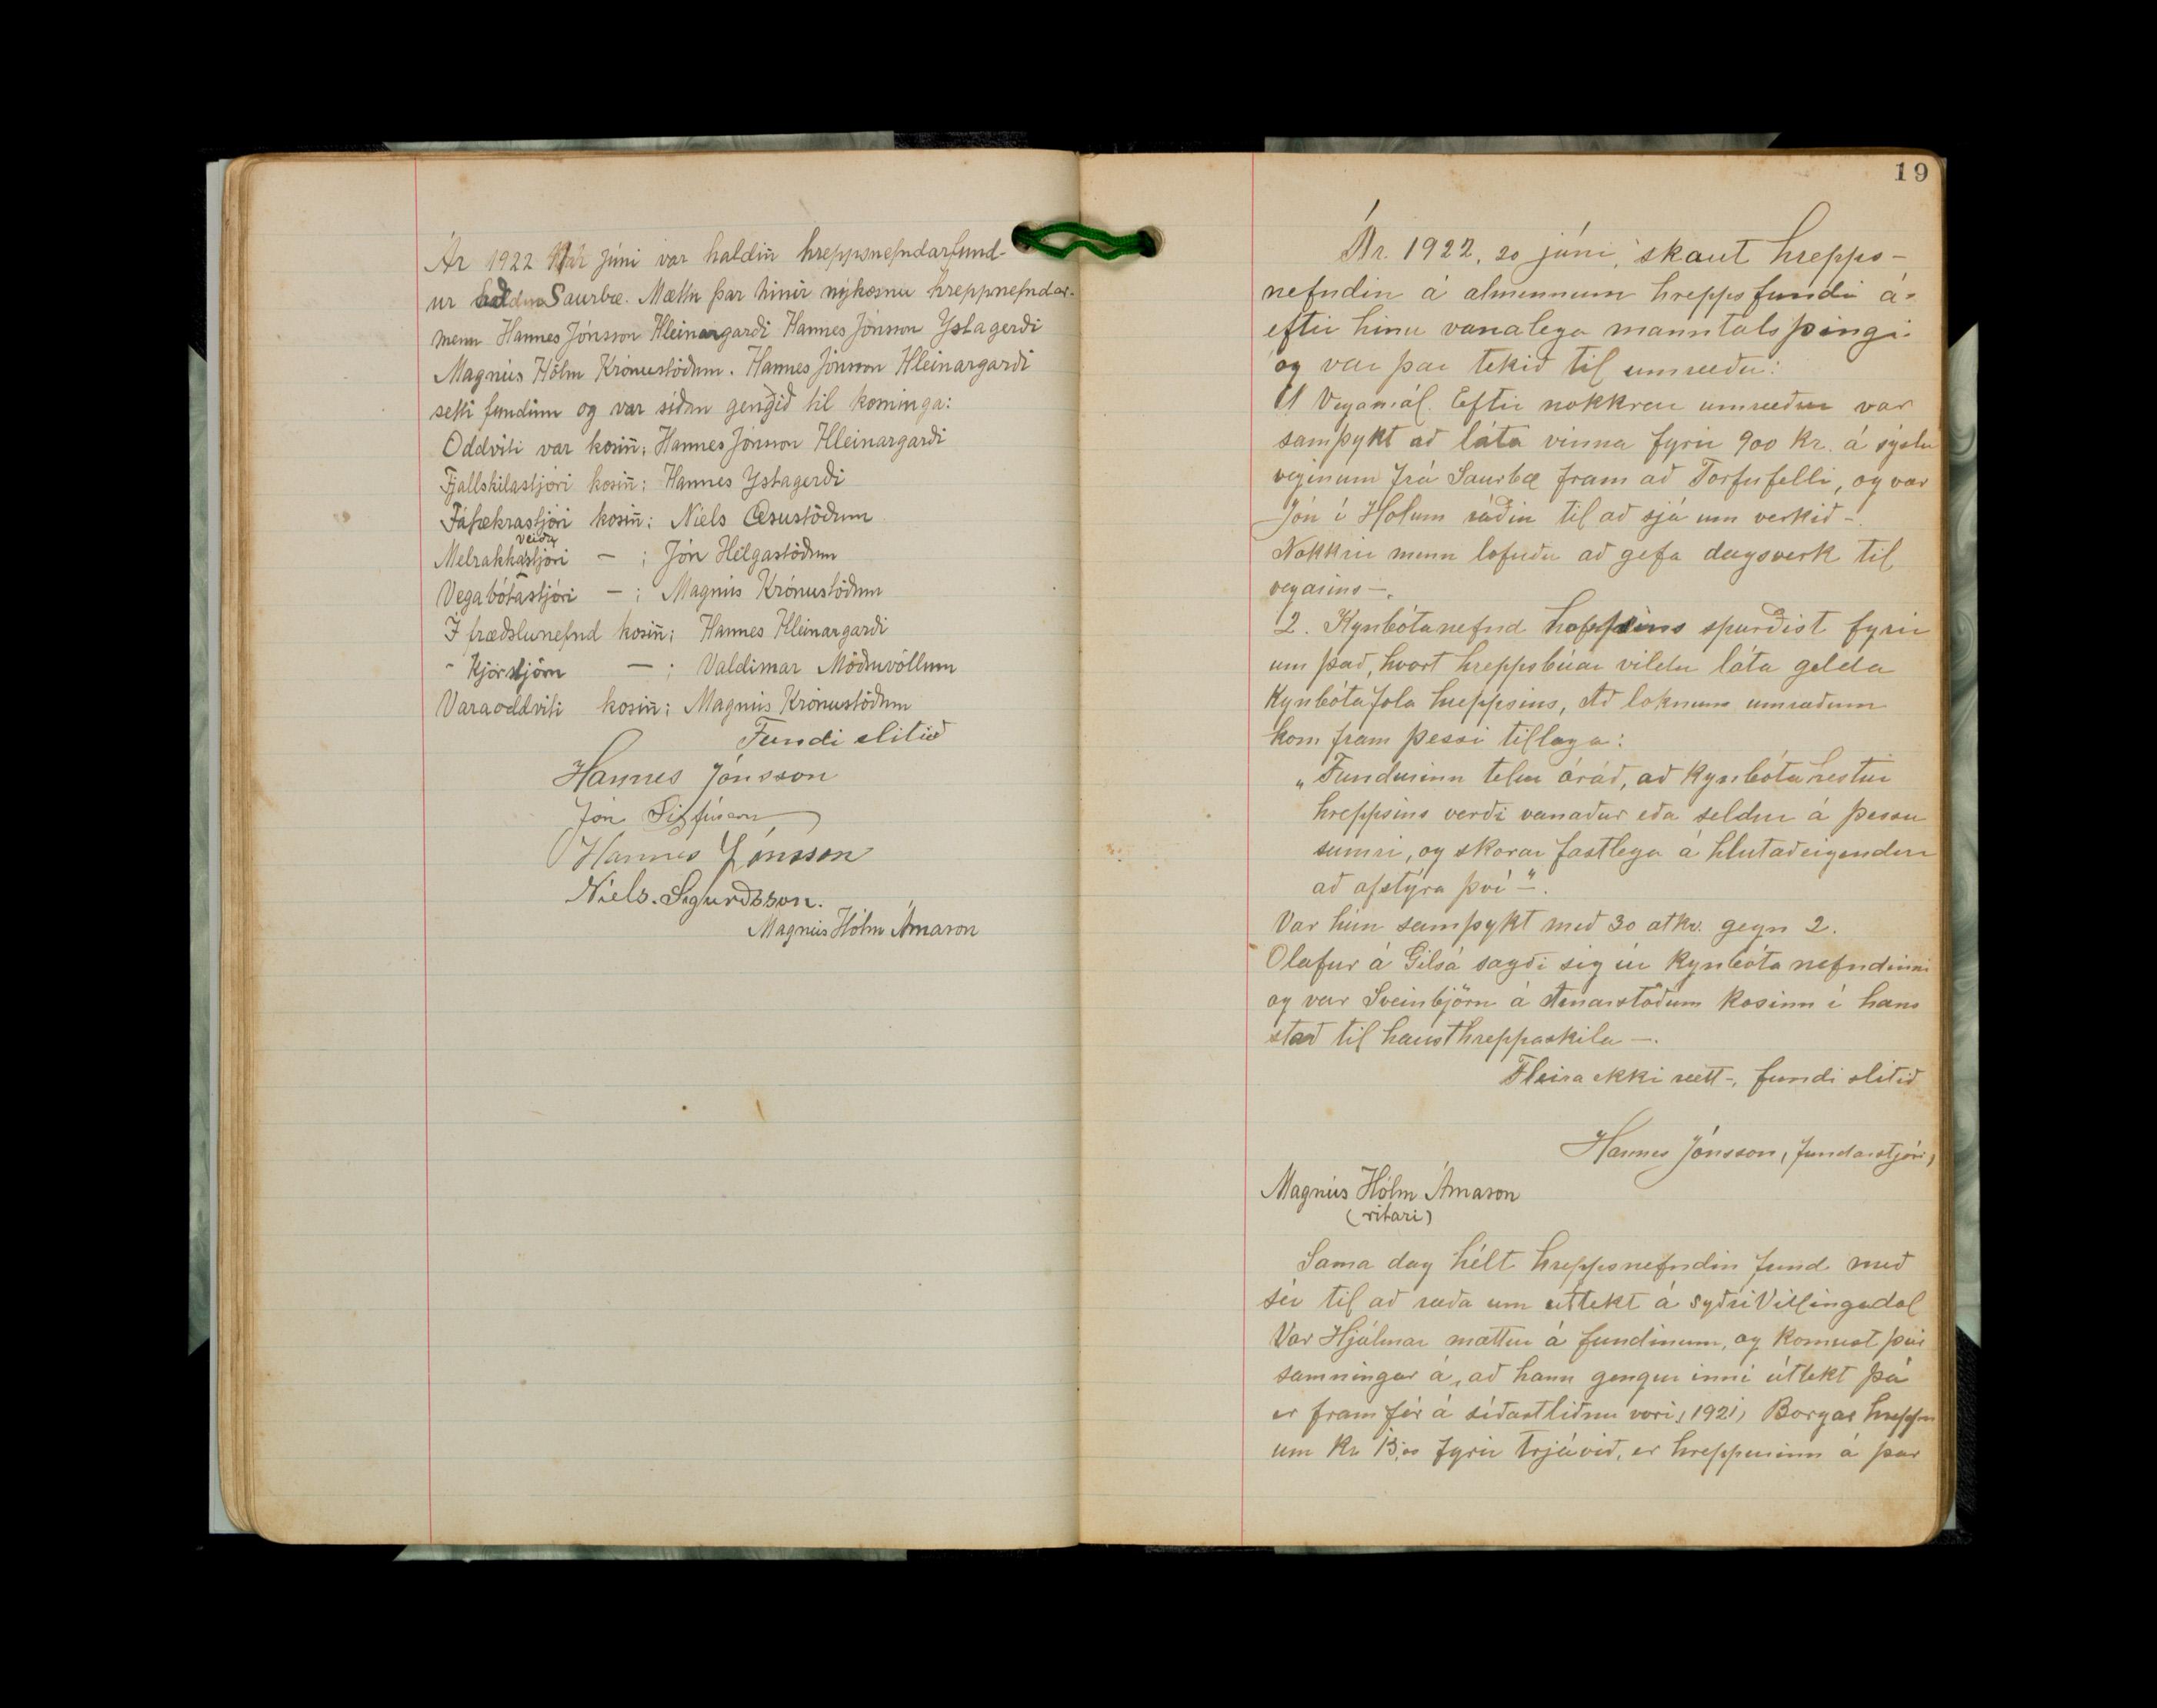 Ár 1922 júni var haldin̄ hreppsnefndarfund-
ur Saurbæ. Mættu þar hinir nýkosnu hreppnefndar-
menn Hannes Jónsson Hleinargarði Hannes Jónsson Ystagerði
Magnús Hólm Krónustöðum. Hannes Jónsson Hleinargarði
setti fundinn og var síðan gengið til kosninga:
Oddviti var kosin̄: Hannes Jónsson Hleinargarði
Fjallskilastjóri kosin̄: Hannes Ystagerði
Fátækrastjóri kosin̄: Níels Æsustöðum
veiða
Melrakkastjóri — : Jón Helgastöðum
Vegabótastjóri — : Magnús Krónustöðum
Í fræðslunefnd kosin̄: Hannes Hleinargarði
- Kjörstjórn — : Valdimar Möðruvöllum
Varaoddviti kosin̄: Magnús Krónustöðum
Fundi slitið
Hannes Jónsson
Jón Sigfússon
Hannes Jónsson
Níels Sigurðsson.
Magnús Hólm Árnason
19
Ár. 1922, 20 júni, skaut hrepps-
nefndin á almennum hreppsfundi á-
eftir hinu vanalega manntalsþingi
og var þar tekið til umræðu:
1 Vegamál. Eftir nokkrar umræður var
samþykt að láta vinna fyrir 900 kr. á sýslu
veginum frá Saurbæ fram að Torfufelli, og var
Jón í Hólum ráðin til að sjá um verkið -.
Nokkrir menn lofuðu að gefa dagsverk til
vegarins -.
2. Kynbótanefnd hreppsins spurðist fyrir
um það, hvort hreppsbúar vildu láta gelda
Kynbótafola hreppsins, Að loknum umræðum
kom fram þessi tillaga:
„Fundurinn telur óráð, að Kynbótahestur
hreppsins verði vanaður eða seldur á þessu
sumri, og skorar fastlega á hlutaðeigendur
að afstýra því -“.
Var hún samþykt með 30 atkv. gegn 2.
Ólafur á Gilsá sagði sig úr Kynbótanefndinni
og var Sveinbjörn á Arnarstöðum kosinn í hans
stað til hausthreppaskila -.
Fleira ekki rætt -, fundi slitið
Hannes Jónsson, fundarstjóri,
Magnús Hólm Árnason
(ritari)
Sama dag hélt hreppsnefndin fund með
sér til að ræða um úttekt á Syðri Villingadal
Var Hjálmar mættur á fundinum, og komust þeir
samningar á, að hann gengur inní úttekt þá
er fram fór á síðastliðnu vori, 1921, Borgar hrepn
um Kr 13,00 fyrir trjávið, er hreppurinn á þar